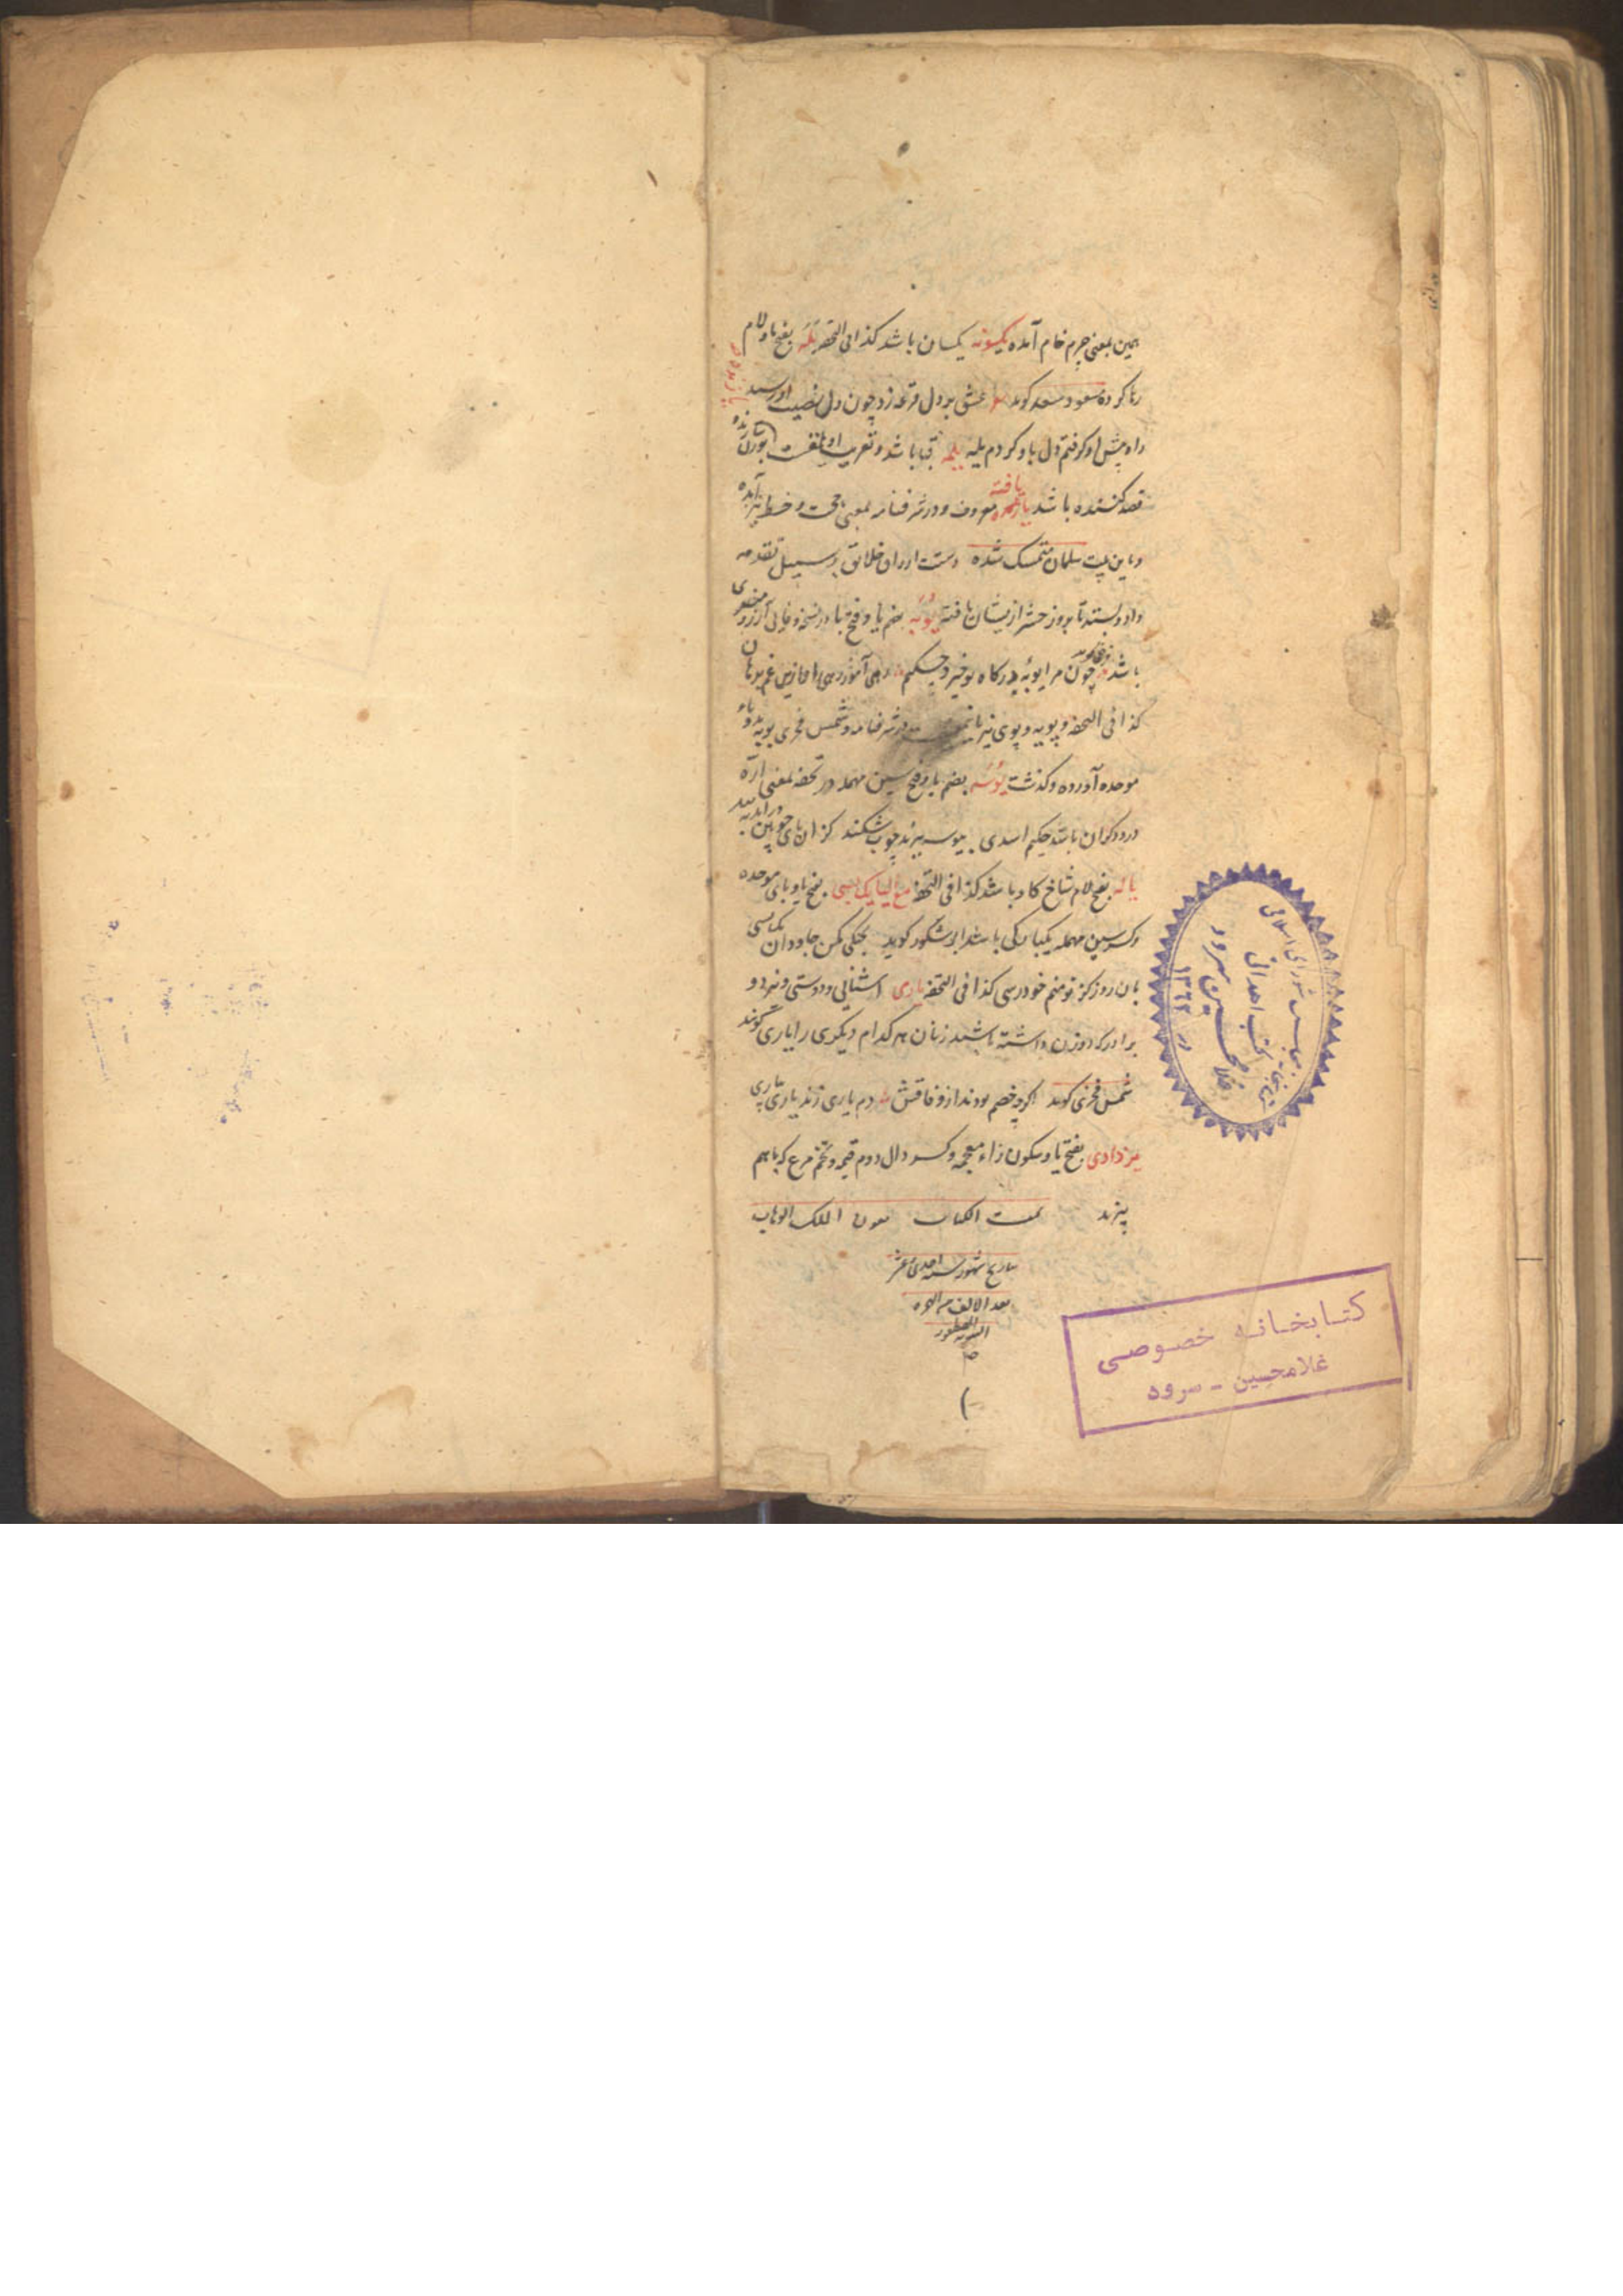 همین بمعنی چرم خام آمده یکسونه یکسان باشد کذا فی التحفه یله بفتح یا و لام
رها کرده مسعود سعد کوید عشق بر دل قرعه زد چون دل نصیب او رسید
راه پیش او کرفتم دل باو کردم یله یلمه قبا باشد و تعریب او یلمق است
قصد کننده باشد یافته معروف و در شرفنامه بمعنی حجت و خط نیز آمده
و باین بیت سلمان متمسک شده دست ادرار خلائق بر سبیل تقدمه
داد و بستد تا بروز حشر ازیشان یافته یوبه بضم یا و فتح با در نسخه وفایی آرزو
باشد چون مرا یوبه درکاه تو خیزد چکنم رهی آموز رهی را و ازین غم برهان
کذا فی التحفه و پویه و پوی نیز در شرفنامه و شمس فخری بویه
موحده آورده و کذشت یوسه بضم یا و فتح سین مهمله در تحفه بمعنی اره
درودکران باشد حکیم اسدی بیوسه ببرند چوب شکند کزان
یاله بفتح لام شاخ کاو باشد کذا فی التحفه مع الیا یک بسی بفتح یا و بای موحده
و کسر سین مهمله یکبارکی باشد ابو شکور کوید
بان روز کز تو منم خود رسی کذا فی التحفه یاری آشنایی و دوستی و نیز دو
برادر که دو زن داشته باشند زنان هر کدام دیکری را یاری کویند
شمس فخری کوید اکرچه خصم بودند از وفاقش دم یاری زند یاری بیاری
یزدادی بفتح یا و سکون زاء معجمه و کسر دال دوم قیمه و تخم مرغ که باهم
پزند تمت الکتاب بعون الملک الوهاب
بتاریخ شهور سنه احدی عشر
بعد الالف من الهجره
النبویه
مجلس شورای اسلامی
کتب اهدائی
غلامحسین سرود
در ۱۳۶۳
کتابخانه خصوصی
غلامحسین - سرود